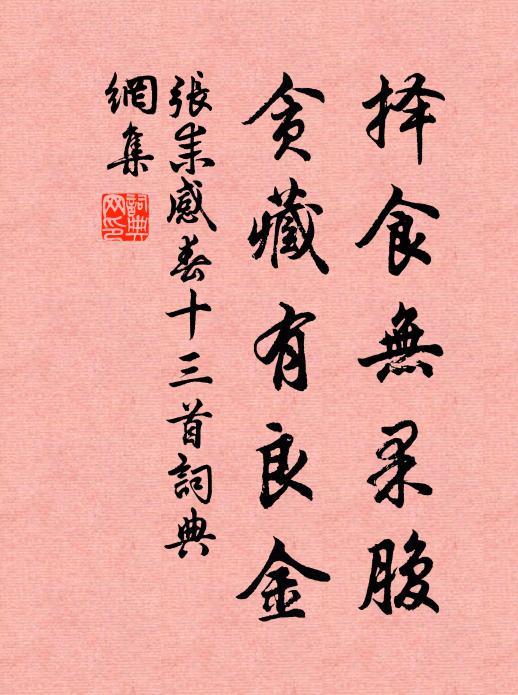 择食無果腹
貪藏有良金
張耒感春十三首詞典
網集
詞典
网印